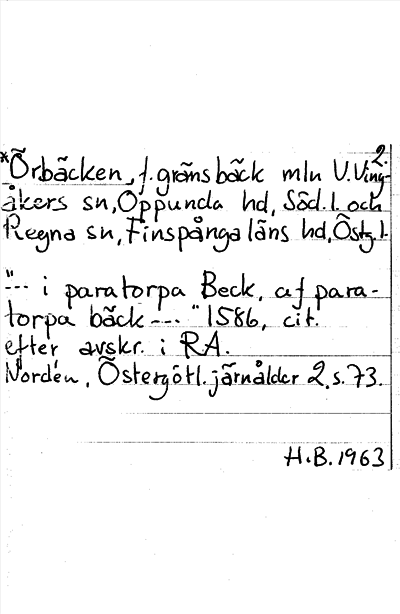 2.
*Örbäcken, f. gränsbäck mln V. Ving-
åkers sn, Oppunda hd, Söd. l. och
Regna sn, Finspånga läns hd, Östg. l.
"--- i paratorpa Beck, af para-
torpa bäck --- " 1586, cit.
efter avskr. i RA.
Nordén, Östergötl. järnålder 2, s. 73.
H.B. 1963